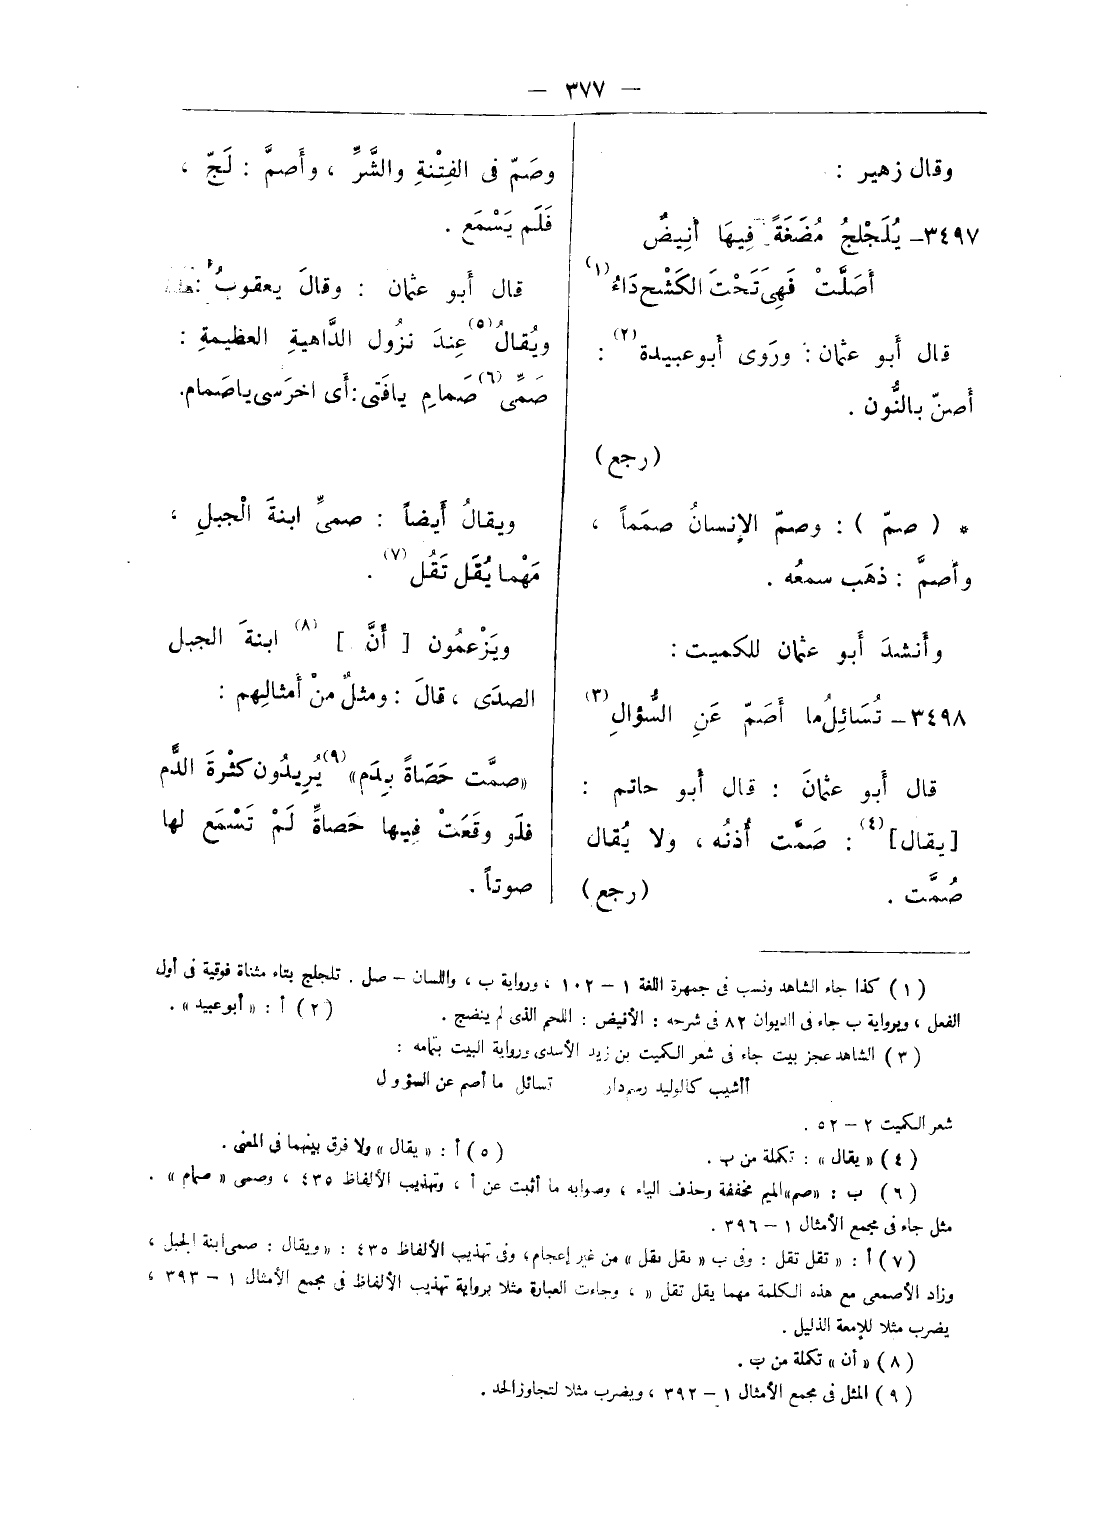 — ٣٧٧ —
وقال زهير :
٣٤٩٧ــ يُلَجْلِجُ مُضْغَةً فِيهَا أَنِيضٌ
أَصَلَّتْ فَهِىَ تَحْتَ الكَشْحِ دَاءُ (١)
قال أَبو عثمان : ورَوى أَبو عبيدة (٢) :
أَصنّ بالنُّون .
(رجع)
* ( صمّ ) : وصمّ الإنسانُ صمَماً ،
وأَصمَّ : ذهَب سمعُه .
وأَنشدَ أَبو عثمان للكميت :
٣٤٩٨ــ تُسَائِلُ ما أَصَمّ عَنِ السُّؤالِ (٣)
قال أَبو عثمانَ : قال أَبو حاتم :
[ يقال ] (٤) : صَمَّت أُذنُه ، ولا يُقال
صُمَّت . (رجع)
وصَمّ فى الفِتْنةِ والشَّرِّ ، وأَصمَّ : لَجّ ،
فَلَم يَسْمَع .
قال أَبو عثمان : وقالَ يعقوبُ :
ويُقالُ (٥) عِندَ نزُول الدَّاهيةِ العظيمةِ :
صَمِّى (٦) صَمامِ يافَتى : أَى اخرَسى ياصَمام.
ويقالُ أَيضاً : صمىِّ ابنةَ الْجبلِ ،
مَهْما يُقَل تَقُل (٧) .
ويَزْعمُون [ أَنَّ ] (٨) ابنةَ الجبل
الصدَى ، قالَ : ومثلٌ منْ أَمثالِهم :
«صمَّت حَصَاةً بِدَم» (٩) يُرِيدُون كثْرةَ الدَّم
فلَو وقَعَتْ فِيها حَصاةٌ لَمْ تَسْمَع لها
صوتاً .
(١) كذا جاء الشاهد ونسب فى جمهرة اللغة ١ – ١٠٢ ، ورواية ب ، واللسان – صلل . تلجلج بتاء مثناة فوقية فى أول
الفعل ، وبرواية ب جاء فى الديوان ٨٢ فى شرحه : الأنيض : اللحم الذى لم ينضج . (٢) أ : « أبو عبيد » .
(٣) الشاهد عجز بيت جاء فى شعر الكميت بن زيد الأسدى ورواية البيت بتمامه :
أأشيب كالوليد رسم دار تسائل ما أصم عن السؤول
شعر الكميت ٢ – ٥٢ .
(٤) « يقال » : تكملة من ب . (٥) أ : « يقال » ولا فرق بينهما فى المعنى .
(٦) ب : «صم» الميم مخففة وحذف الياء ، وصوابه ما أثبت عن أ ، وتهذيب الألفاظ ٤٣٥ ، وصمى « صمام » .
مثل جاء فى مجمع الأمثال ١ – ٣٩٦ .
(٧) أ : « تقل تقل : وفى ب « ىقل ىقل » من غير إعجام ، وفى تهذيب الألفاظ ٤٣٥ : « ويقال : صمى ابنة الجبل ،
وزاد الأصمعى مع هذه الكلمة مهما يقل تقل » ، وجاءت العبارة مثلا برواية تهذيب الألفاظ فى مجمع الأمثال ١ – ٣٩٣ ،
يضرب مثلا للإمعة الذليل .
(٨) « أن » تكملة من ب .
(٩) المثل فى مجمع الأمثال ١ – ٣٩٢ ، ويضرب مثلا لتجاوز الحد .